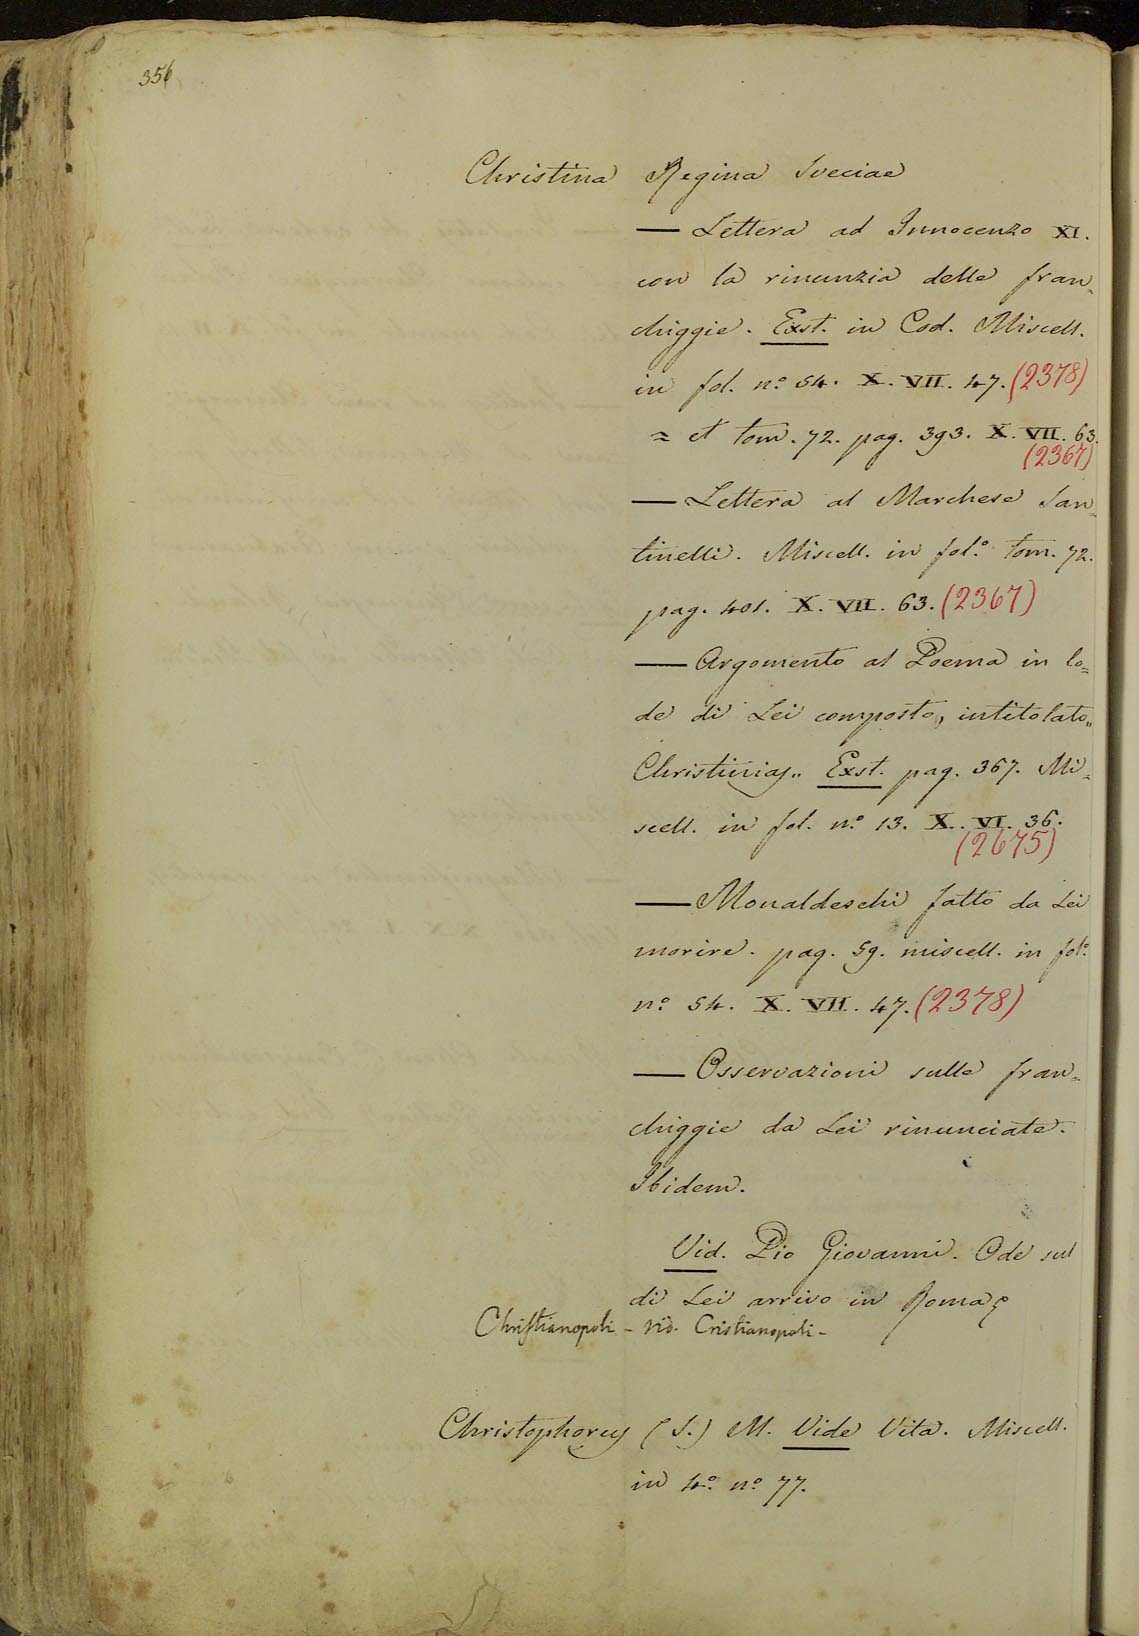 356
Christina Regina Sveciae
— Lettera ad Innocenzo XI.
con la rinunzia delle fran=
chiggie. Exst. in Cod. Miscell.
in fol. n.º 54. X. VII. 47. (2378)
= et tom. 72. pag. 393. X. VII. 63.
(2367)
— Lettera al Marchese San=
tinelli. Miscell. in fol.º tom. 72.
pag. 401. X. VII. 63. (2367)
— Argomento al Poema in lo=
de di Lei composto, intitolato„
Christinias„ Exst. pag. 367. Mi=
scell. in fol. n.º 13. X. VI. 36.
(2675)
— Monaldeschi fatto da Lei
morire. pag. 59. miscell. in fol.º
n.º 54. X. VII. 47. (2378)
— Osservazioni sulle fran=
chiggie da Lei rinunciate.
Ibidem.
Vid. Pio Giovanni. Ode sul
di Lei arrivo in Roma
Christianopoli - vid. Cristianopoli -
Christophorus (S.) M. Vide Vita. Miscell.
in 4.º n.º 77.